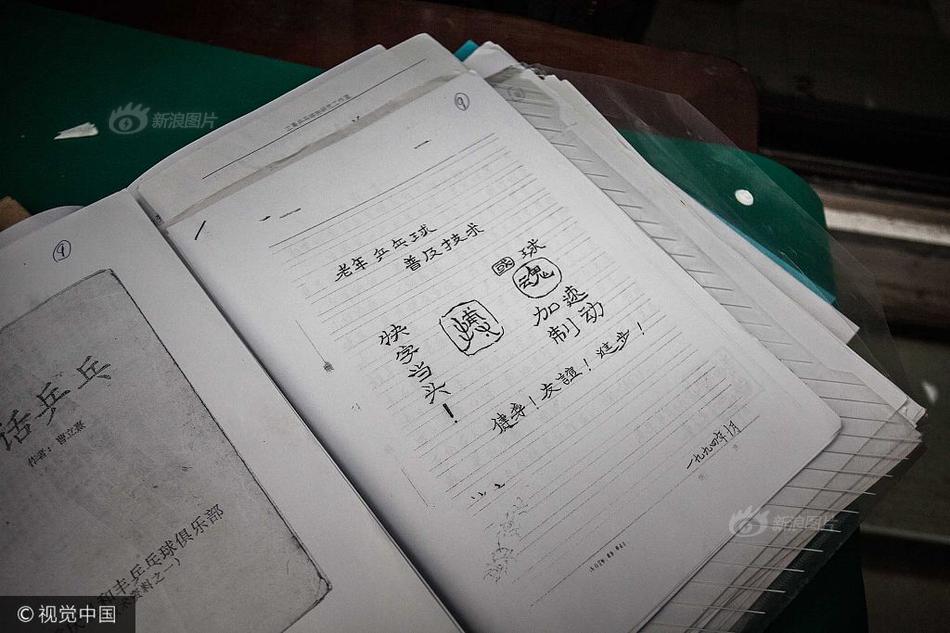 新浪图片
9
话乒乓
作者：曹立
和丰乒乓球俱乐部
资料之一)
9
老年乒乓球
普及技术
國球
魂
快字当头！
加速
制动
健身！友誼！進步！
一九九四年
新浪图片
© 视觉中国